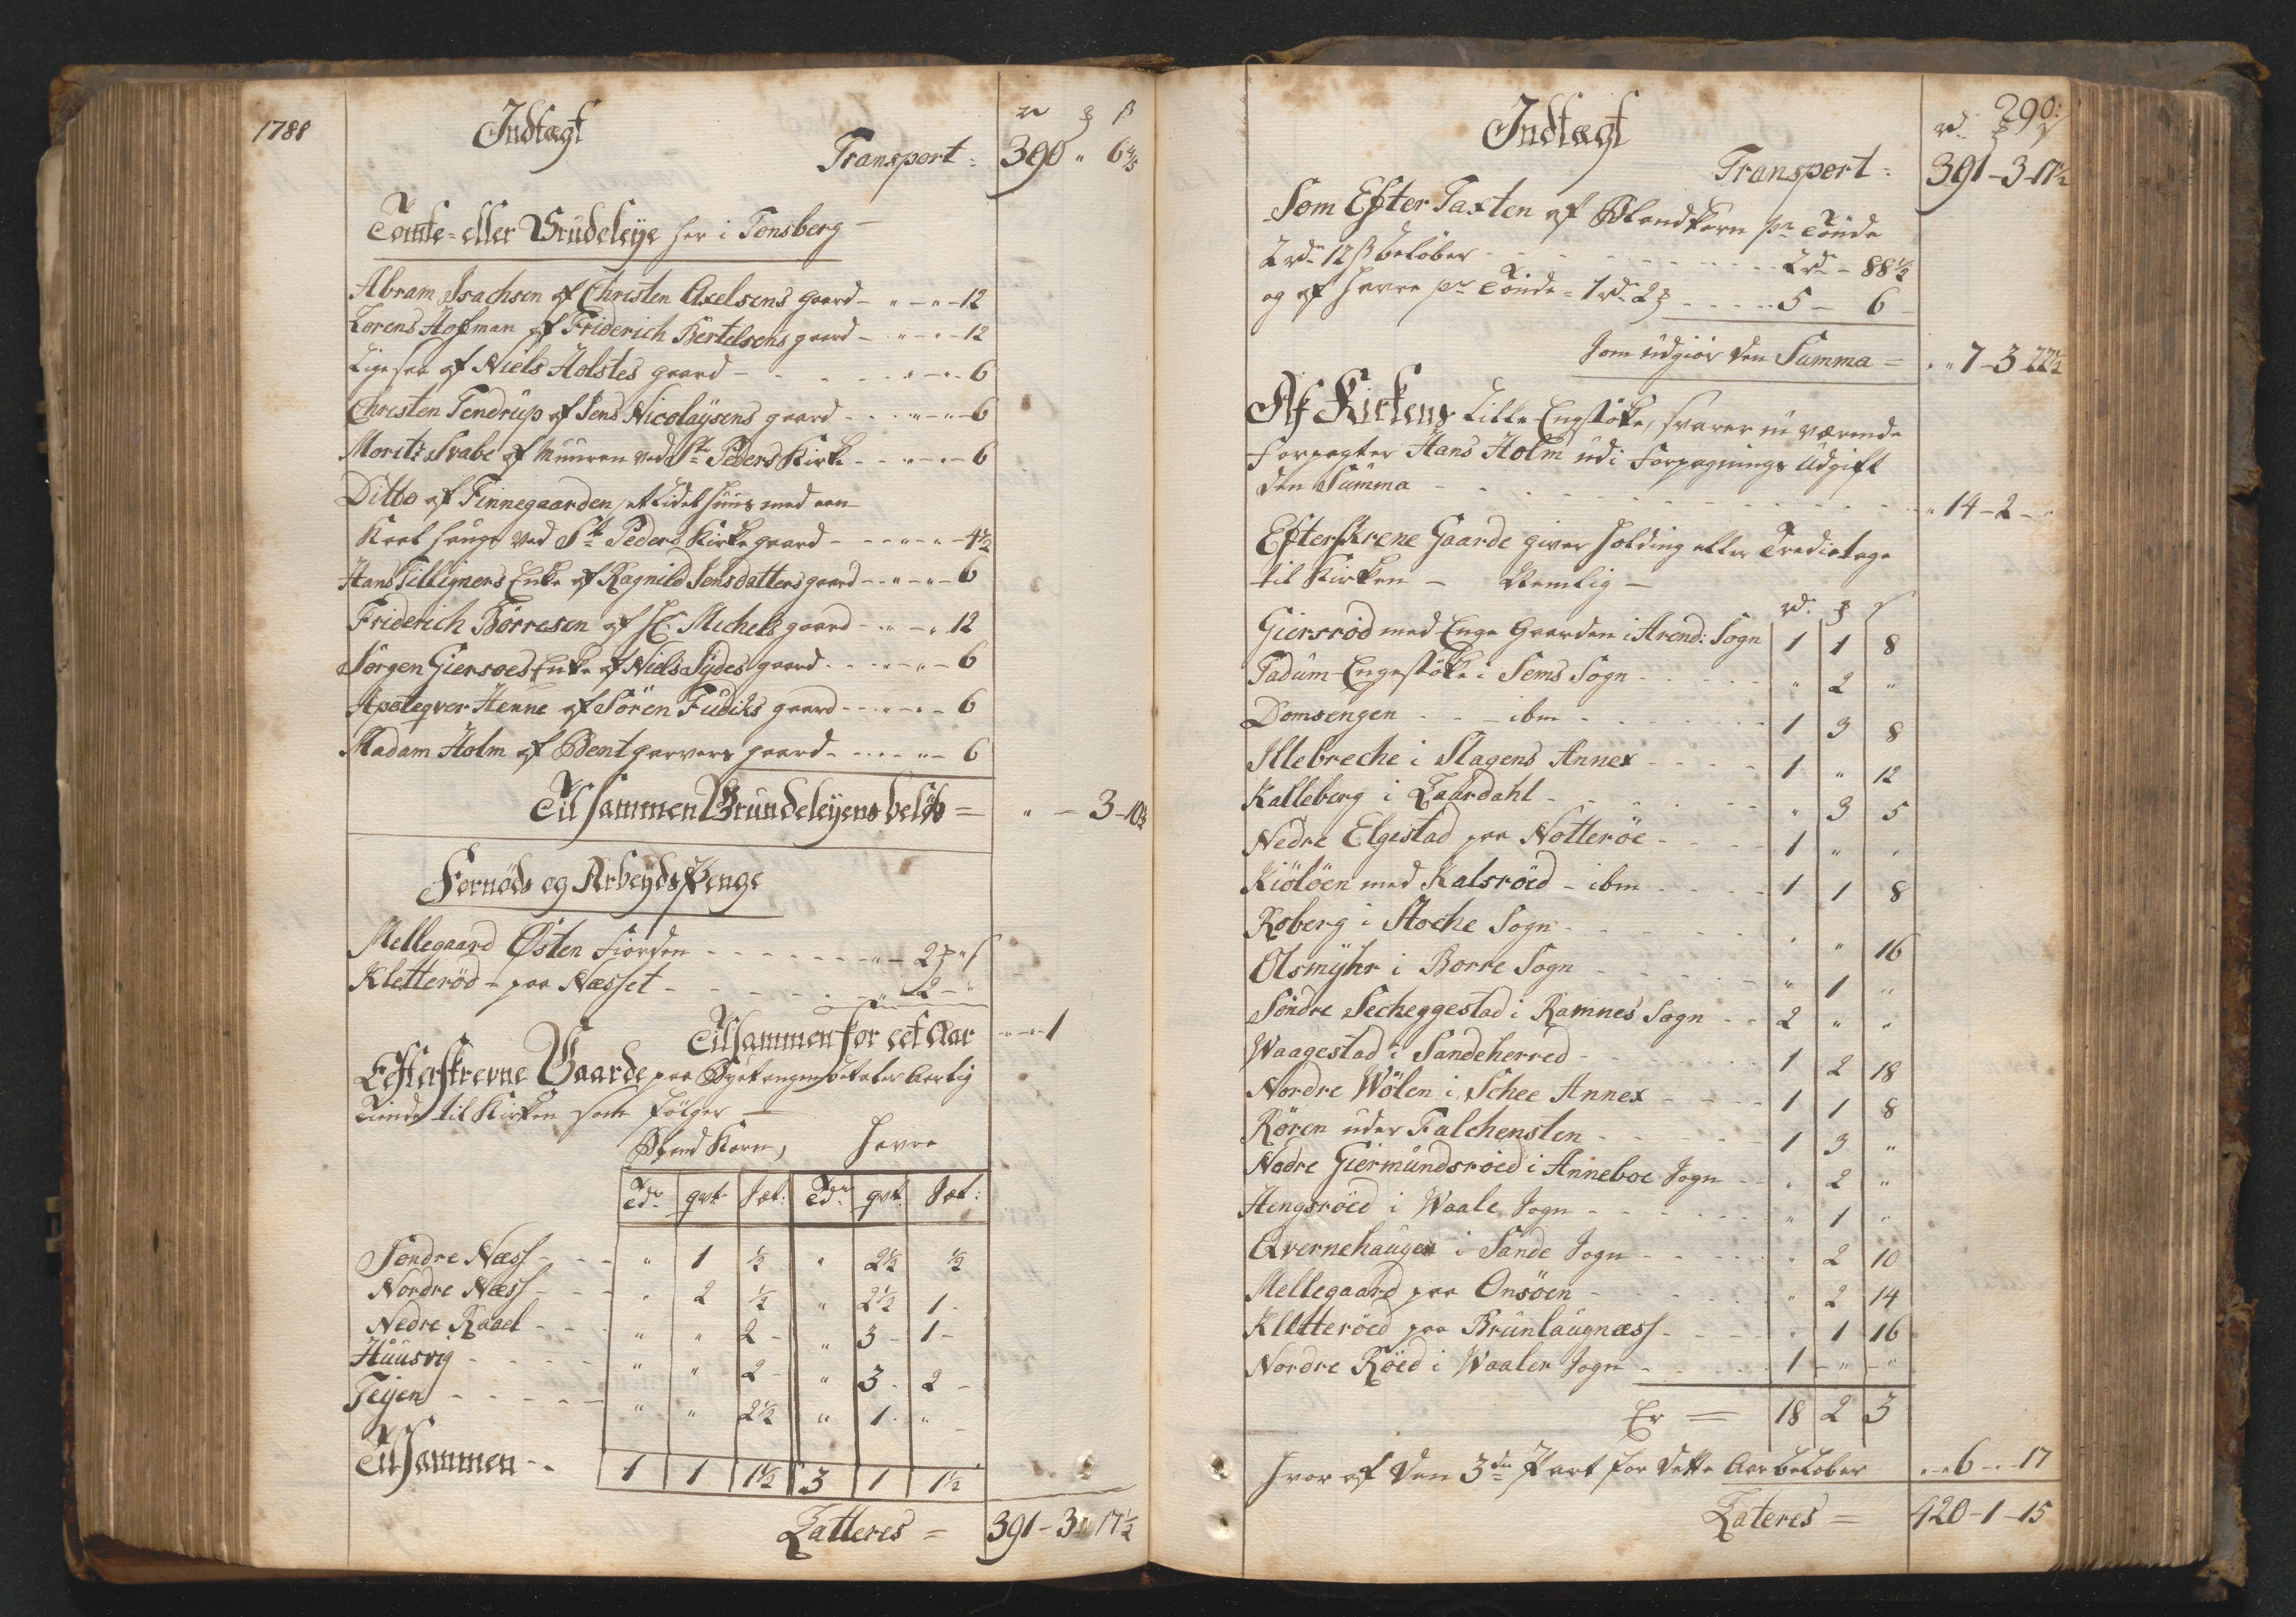 1788
Indtægt
rd ꝫ ß
Transport = 390 " 6 4/5
Tomte= eller Grudeleÿe her i Tonsberg
Abram Isachsen af Christen Axelsens gaard - " - " - 12
Lorens Hofman af Friderich Bertelsens gaard - " - " - 12
Ligesaa af Niels Holstes gaard - - - " - " - 6
Christen Tendrup af Jens Nicolaÿsens gaard - - " - " - 6
Moritz Svabe af Muuren ved St Peders Kirke - - " - " - 6
Ditto af Finnegaarden, et lidet huus med een
Kaal hauge ved St Peders Kirke gaard - - " - " - 4½
Hans Tilligners Enke af Ragnild Jensdatters gaard - " - " - 6
Friderich Börresen af Hr Michels gaard - " - " 12
Jörgen Giersoes Enke af Niels Sÿdes gaard - - " - " - 6
Apoteqver Henne af Sören Fudiks gaard - - " - " - 6
Madam Holm af Bent garvers gaard - - - " - 6
Til sammen Grundeleÿens belöb = " - 3 - 10½
Fornöds og Arbeÿds Penge
Mellegaard Østen Fiorden - - - - " - 2ꝫ " ß
Kletteröd - paa Næsset - - - - " - 2 - "
Tilsammen for eet Aar - " - 1
Efterskrevne Gaarde paa betaler Aarlig
Tiende til Kirken som fölger -
Bland Korn, Havre
Tdr qvt. Sæt: Tdr qvt. Sæt:
Söndre Næss - - " 1 ½ " 2½ ½
Nordre Næss - - " 2 ½ " 2½ 1 -
Nedre Raael - - " " 2 - " 3 - 1 -
Huusvig - - - " " 2 - " 3 - 2 -
Teÿen - - - - " " 2½ " 1 - "
Tilsammen - 1 1 1½ 3 1 1½
Latteres = 391 - 3 - 17½
290:
Indtægt
rd ꝫ ß
Transport = 391 - 3 - 17½
Som Efter Taxten af Blandkorn pr Tönde
2 rd 12 ß belöber - - - - 2 rd - 88½
og af Havre pr Tönde = 1 rd 2ꝫ - - - - 5 - 6 -
Som udgiör den Summa = " " 7 - 3 - 22½
Af Kirkens Lille Engstökke, svarer nu værende
Forpagter Hans Holm udi Forpagnings Udgift
den Summa - - - - - " 14 - 2 - "
Efterskrene Gaarde giver holding eller Tredietage
til Kirken - Nemlig -
rd. ꝫ ß
Giersröd med Enge Gaarden i Arend: Sogn 1 1 8
Tadum Engestökke i Sems Sogn - - - " 2 "
Domsengen - - - ibm - - - - 1 3 8
Illebreche i Slagens Annex - - - 1 " 12
Kalleberg i Laurdahl - - - - " 3 5
Nedre Elgestad paa Notteröe - - - 1 " "
Kiölöen med Kalsröed - ibm - - - 1 1 8
Roberg i Stoche Sogn - - - - " " 16
Olsmÿhr i Borre Sogn - - - - " 1 "
Söndre Secheggestad i Ramnes Sogn - - 2 " "
Waagestad i Sandeherred - - - - 1 2 18
Nordre Wölen i Schee Annex - - - 1 1 8
Rören uder Falchensten - - - - 1 3 "
Nedre Giermundsröed i Anneboe Sogn - - " 2 "
Hengsröed i Waale Sogn - - - - " 1 "
Qvernehaugen i Sande Sogn - - - - " 2 10
Mellegaard paa Onsöen - - - - " 2 14
Kletteröed paa Brunlaugnæss - - - " 1 16
Nordre Röed i Waaler Sogn - - - 1 - " - "
Er = 18 2 3
Hvor af den 3de Part for dette Aar belöber " - 6 - " - 17
Lateres = 420 - 1 - 15